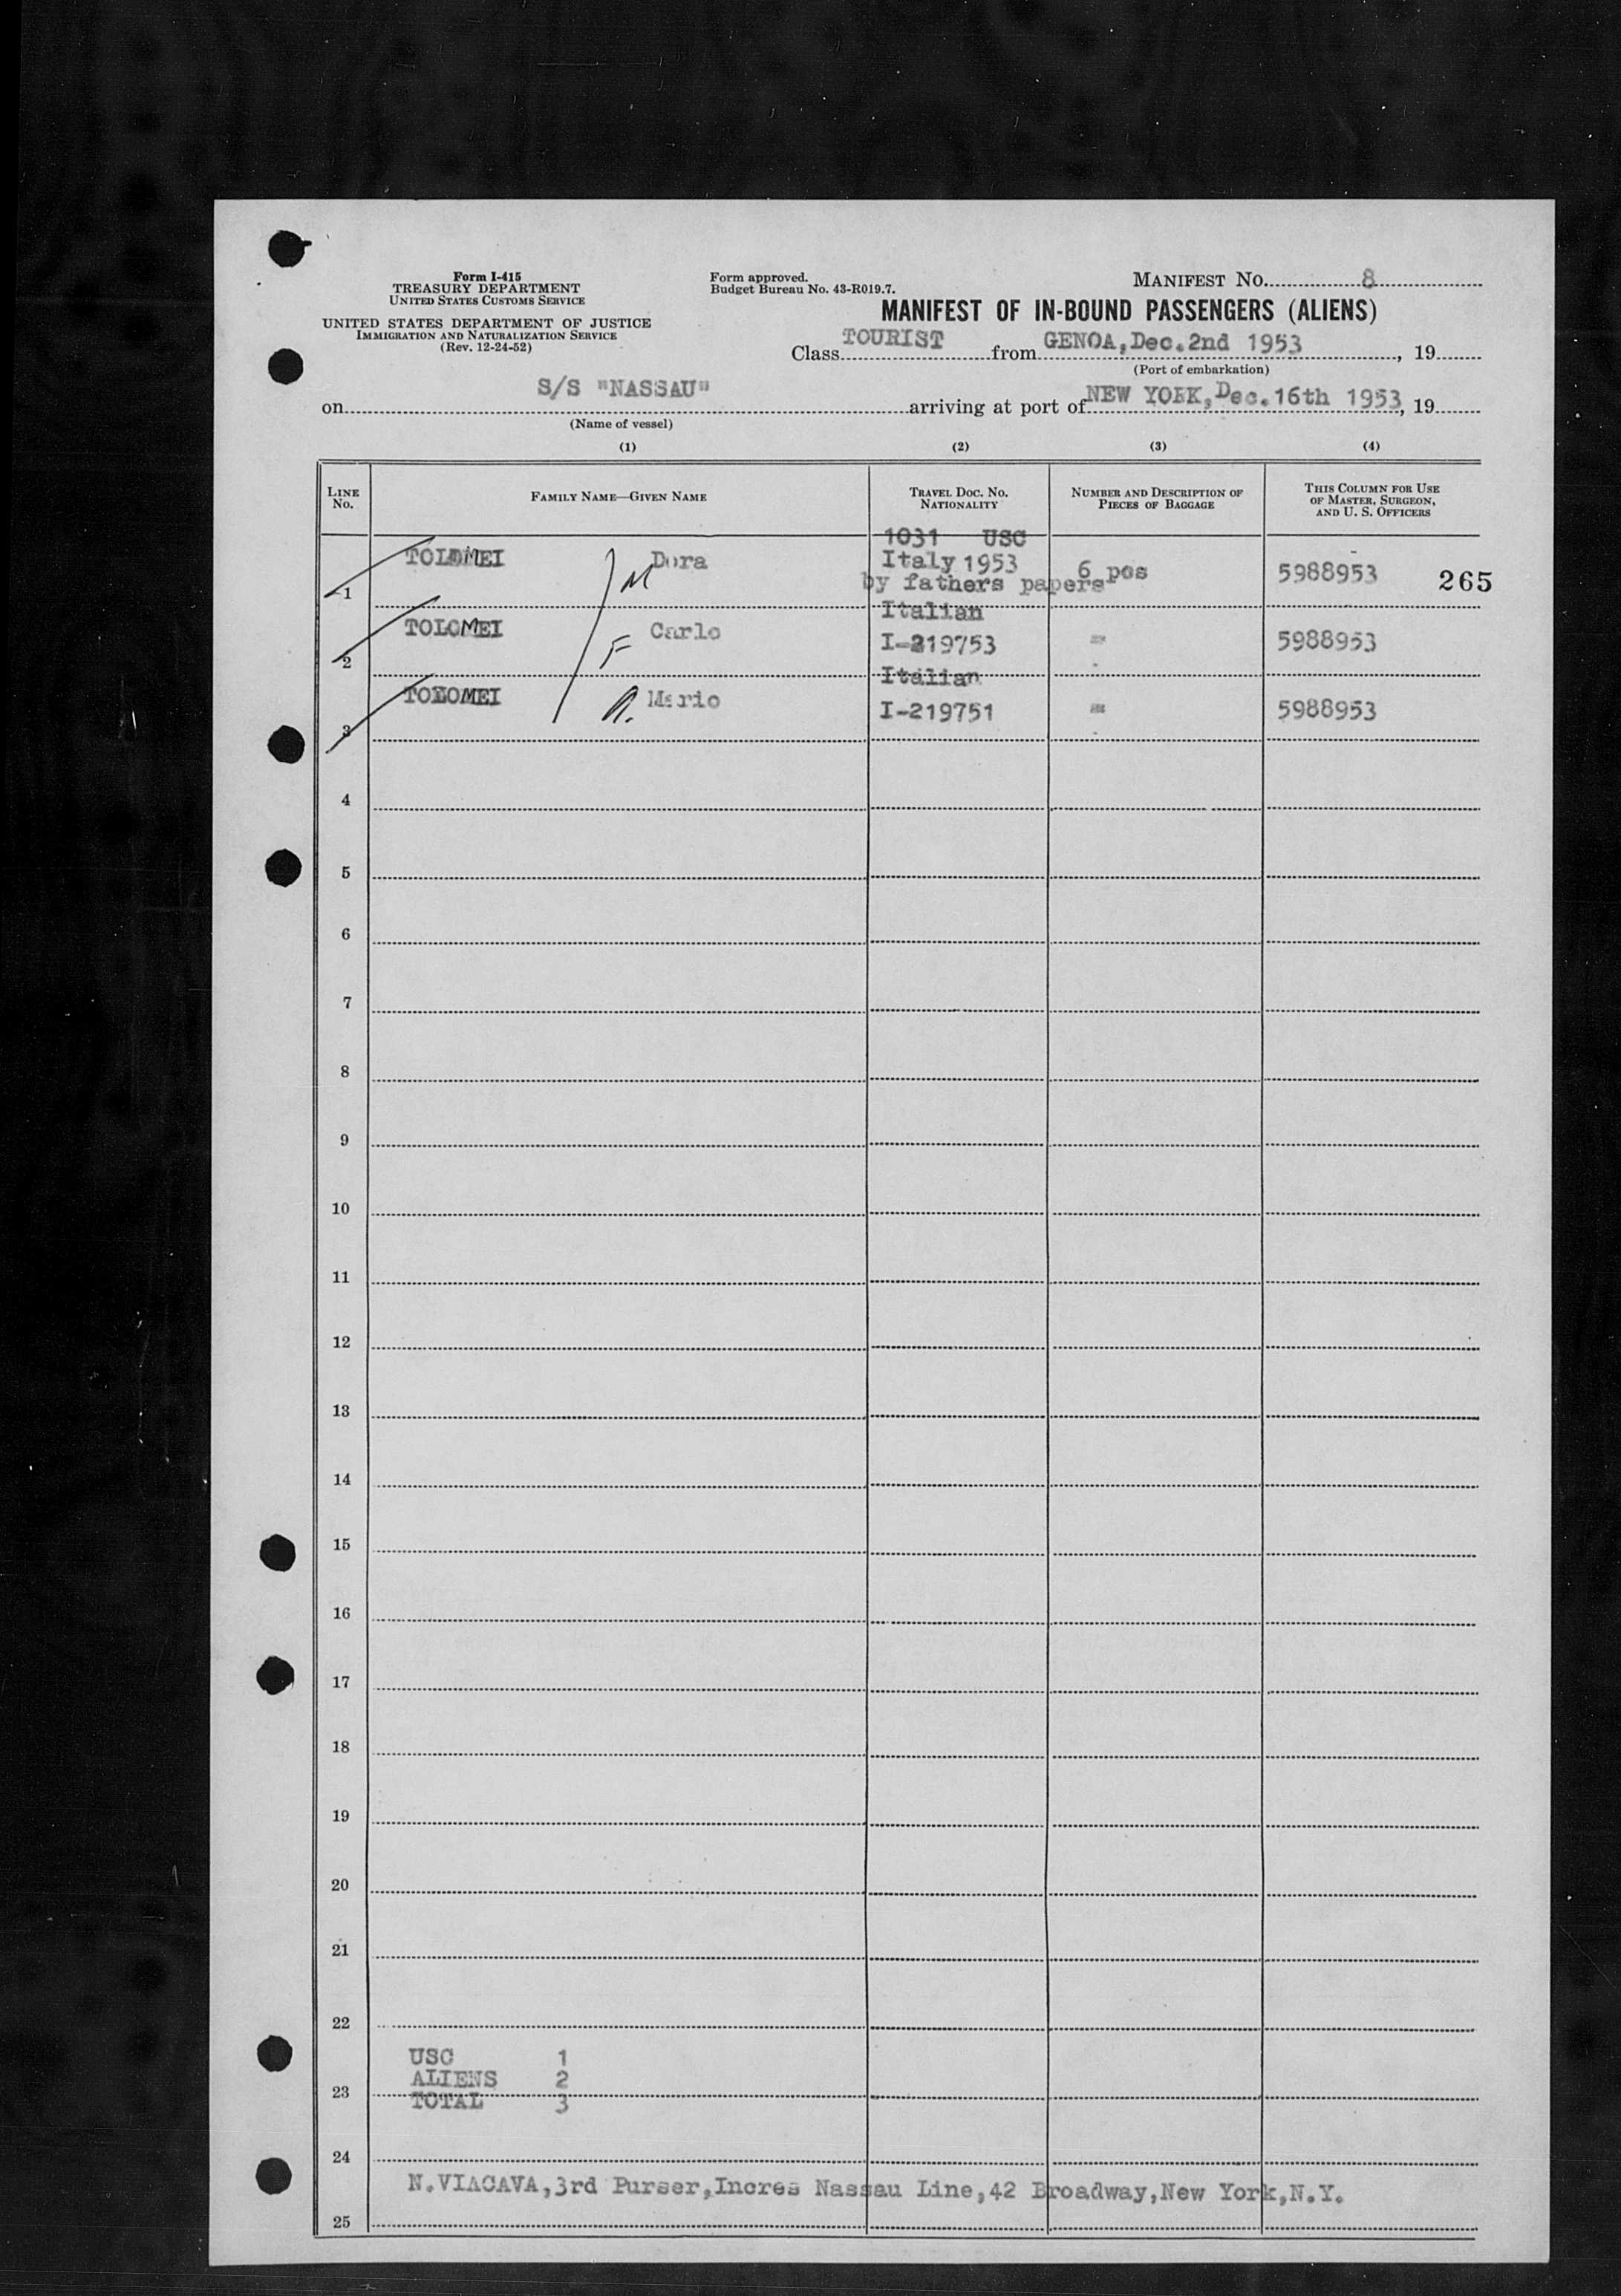 Form I-415
TREASURY DEPARTMENT
UNITED STATES CUSTOMS SERVICE
UNITED STATES DEPARTMENT OF JUSTICE
IMMIGRATION AND NATURALIZATION SERVICE
(Rev. 12-24-52)
Form approved.
Budget Bureau No. 43-R019.7.
MANIFEST No. 8
MANIFEST OF IN-BOUND PASSENGERS (ALIENS)
Class TOURIST from GENOA, Dec. 2nd 1953, 19
(Port of embarkation)
on S/S "NASSAU" arriving at port of NEW YORK, Dec. 16th 1953, 19
(Name of vessel)
(1) (2) (3) (4)
LINE No.
FAMILY NAME—GIVEN NAME
TRAVEL DOC. NO. NATIONALITY
NUMBER AND DESCRIPTION OF PIECES OF BAGGAGE
THIS COLUMN FOR USE OF MASTER, SURGEON, AND U. S. OFFICERS
1031 USC
1 TOLOMEI M Dora Italy 1953 6 pcs 5988953 265
by fathers papers
Italian
2 TOLOMEI F Carlo I-219753 " 5988953
Italian
3 TOLOMEI Mario I-219751 " 5988953
4
5
6
7
8
9
10
11
12
13
14
15
16
17
18
19
20
21
22
USC 1
ALIENS 2
23
TOTAL 3
24
N.VIACAVA,3rd Purser,Incres Nassau Line,42 Broadway,New York,N.Y.
25